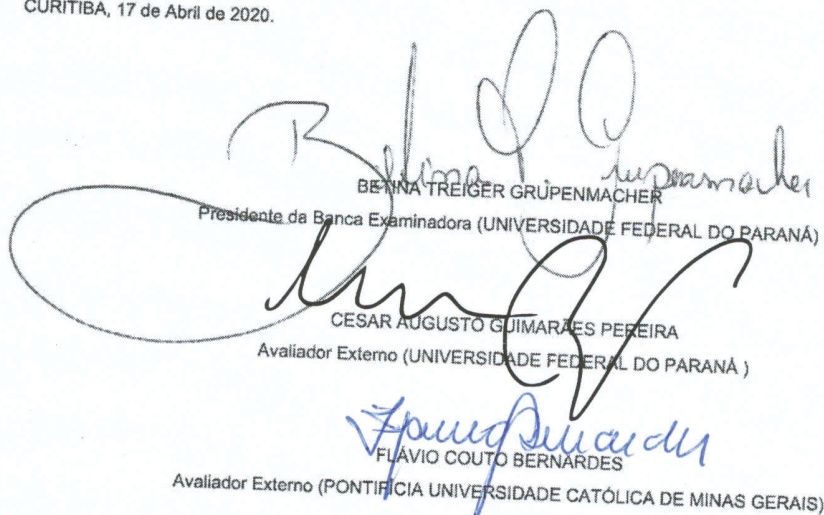 CURITIBA, 17 de Abril de 2020.
Betina T. Grupenmacher
BETINA TREIGER GRUPENMACHER
Presidente da Banca Examinadora (UNIVERSIDADE FEDERAL DO PARANÁ)
CESAR AUGUSTO GUIMARÃES PEREIRA
Avaliador Externo (UNIVERSIDADE FEDERAL DO PARANÁ )
FLÁVIO COUTO BERNARDES
Avaliador Externo (PONTIFÍCIA UNIVERSIDADE CATÓLICA DE MINAS GERAIS)